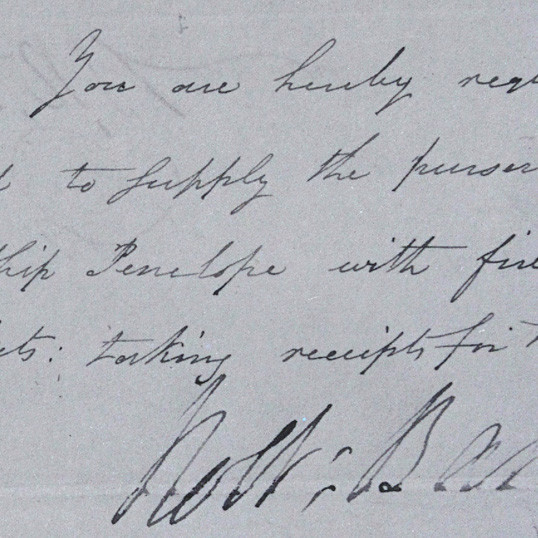 You are hereby requ
d to supply the purser
ship Penelope with five
ets: taking receipts for
Robt: Bar